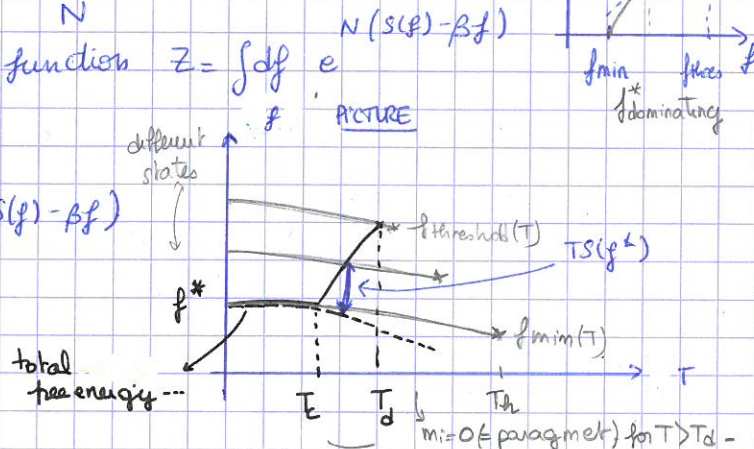 N
function Z = ∫df e^{N(S(f)-βf)}
f
fmin fthres f
f* dominating
PICTURE
different
states
S(f) - βf)
fthreshold(T)
TS(f*)
f*
fmin(T)
total
free energy ---
Tc Td Th T
mi=0 (= paragmet) for T>Td -